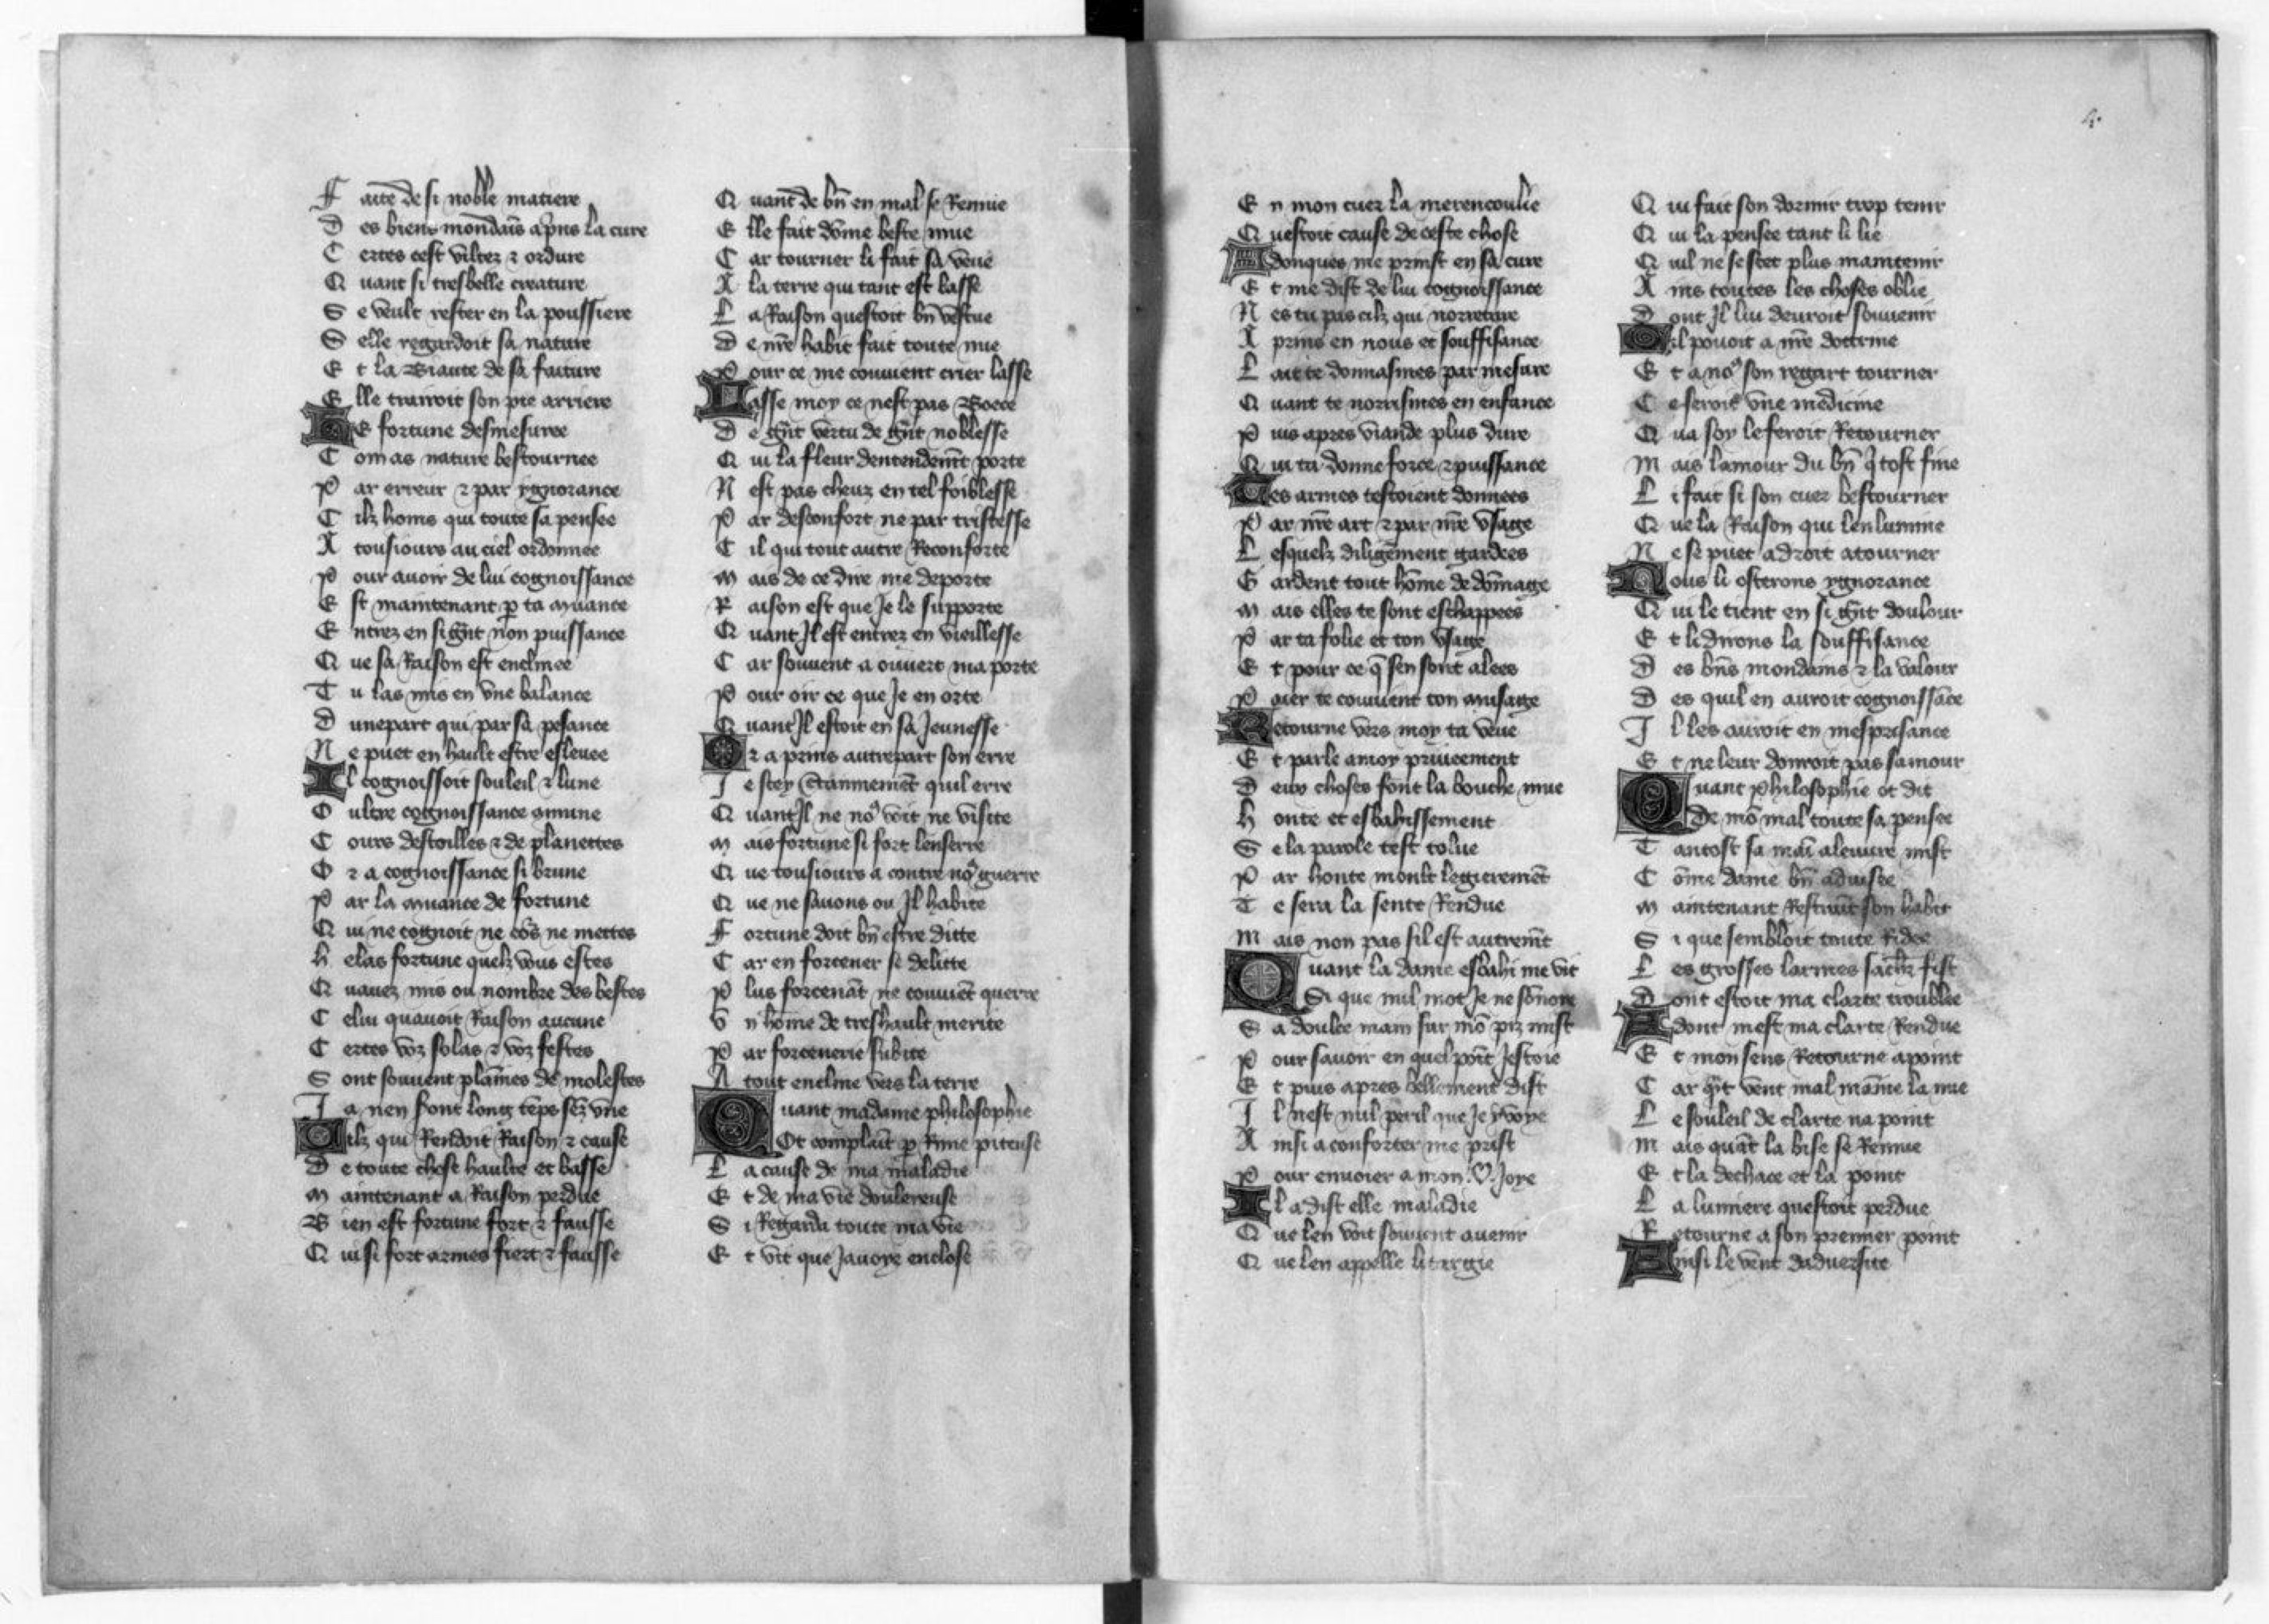 Faite de si noble matiere
Des biens mondais apns la cure
Certes cest viltez ⁊ ordure
Quant si tresbelle creature
Se veult rester en la poussiere
Selle regardoit sa nature
Et la Biaute de sa faiture
Elle trairoit son pie arriere
He fortune desmesuree
Com as nature bestournee
Par erreur ⁊ par ygnorance
Cilz homs qui toute sa pensee
A tousiours au ciel ordonnee
Pour auoir de lui cognoissance
Est maintenant p̲ ta muance
Entrez en si gñt non puissance
Que sa Raison est encline
Tu las mis en vne balance
Dunepart qui par sa pesance
Ne puet en hault estre esleuee
Il cognoissoit souleil ⁊ lune
Oultre cognoissance omune
Cours destoilles ⁊ de planettes
Or a cognoissance si brune
Par la muance de fortune
Qui ne cognoit ne cõs ne mettes
Helas fortune quelz vous estes
Qauez mis ou nombre des bestes
Celui quauoit Raison aucune
Certes voz solas ⁊ voz festes
Sont souuent plaĩnes de molestes
Ja nen font long tẽps sẽz vne
Cilz qui Rendoit Raison ⁊ cause
De toute chose haulte et basse
Maintenant a Raison perdue
Bien est fortune fort ⁊ fausse
Qui si fort armes fiert ⁊ fausse
Quant de bñ en mal se Remue
Elle fait dõme beste mue
Car tourner li fait sa veue
A la terre qui tant est basse
La Raison questoit bñ vestue
De nr̃e habit fait toute nue
Pour ce me conuient crier lasse
Lasse moy ce nest pas Boece
De gñt vertu de gñt noblesse
Qui la fleur dentendemẽt porte
Nest pas cheuz en tel foiblesse
Par desconfort ne par tristesse
Cil qui tout autre Reconforte
Mais de ce dire me deporte
Raison est que Je le supporte
Quant Jl est entrez en vieillesse
Car souuent a ouuert ma porte
Pour oir ce que Je en orte
Quant Jl estoit en sa Jeunesse
Or a prins autrepart son erre
Je scey certainnemẽt quil erre
Quant Jl ne noꝰ voit ne visite
Mais fortune si fort lenserre
Que tousiours a contre noꝰ guerre
Que ne sauons ou Jl habite
Fortune doit bñ estre ditte
Car en forcener se delitte
Plus forcenãt ne conuiẽt querre
Vn hõme de treshault merite
Par forcenerie subite
A tout encline vers la terre
Quant madame philosophie
Ot complaĩt p̲ Rime piteuse
La cause de ma maladie
Et de ma vie doulereuse
Si Regarda toute ma vie
Et vit que Jauoye enclose
En mon cuer la merencoulie
Questoit cause de ceste chose
Adonques me prinst en sa cure
Et me dist de lui cognoissance
Nes tu pas cilz qui norreture
A prins en nous et souffisance
Lait te donnasmes par mesure
Quant te norrismes en enfance
Puis apres viande plus dure
Qui ta donne force ⁊ puissance
Tes armes testoient donnees
Par nr̃e art ⁊ par nr̃e vsage
Lesquelz diligẽment gardees
Gardent tout hõme de dõmage
Mais elles te sont eschappees
Par ta folie et ton vsage
Et pour ce q̃ sen sont alees
Paier te conuient ton musage
Retourne vers moy ta veue
Et parle amoy priueement
Deux choses font la bouche mue
Honte et esbahissement
Se la parole test tolue
Par honte moult legieremẽt
Te sera la sente Rendue
Mais non pas sil est autremẽt
Quant la dame esbahi me vit
Si que nul mot Je ne sõnoie
Sa doulce main sur mõ piz mist
Pour sauoir en quel poĩt Jestoie
Et puis apres bellement dist
Il nest nul peril que Je y voye
Ainsi a conforter me prist
Pour enuoier a mon ♡ Joye
Il a dist elle maladie
Que len voit souuent auenir
Que len appelle litargie
Qui fait son dormir trop tenir
Qui la pensee tant li lie
Quil ne se scet plus maintenir
Ains toutes les choses oblie
Dont Jl lui deuroit souuenir
Sil pouoit a nr̃e doctrine
Et a noꝰ son regart tourner
Ce seroit vne medicine
Qua soy le feroit Retourner
Mais lamour du bñ q̃ tost fine
Li fait si son cuer bestourner
Que la Raison qui lenlumine
Ne se puet a droit atourner
Nous li osterons ygnorance
Qui le tient en si gñt doulour
Et li dirons la souffisance
Des bñs mondains ⁊ la valour
Des quil en auroit cognoissãce
Il les auroit en mesprisance
Et ne leur donroit pas samour
Quant Philosophie ot dit
De mõ mal toute sa pensee
Tantost sa maĩ a leuure mist
Cõme dame bñ aduisee
Maintenant Restraint son habit
Si que sembloit toute Ridee
Les grosses larmes sachz fist
Dont estoit ma clarte troublee
Adont mest ma clarte Rendue
Et mon sens Retourne apoint
Car q̃t vent mal mãine la nue
Le souleil de clarte na point
Mais quãt la bise se Remue
Et la dechace et la point
La lumiere questoit perdue
Retourne a son premier point
Ainsi le vent daduersite